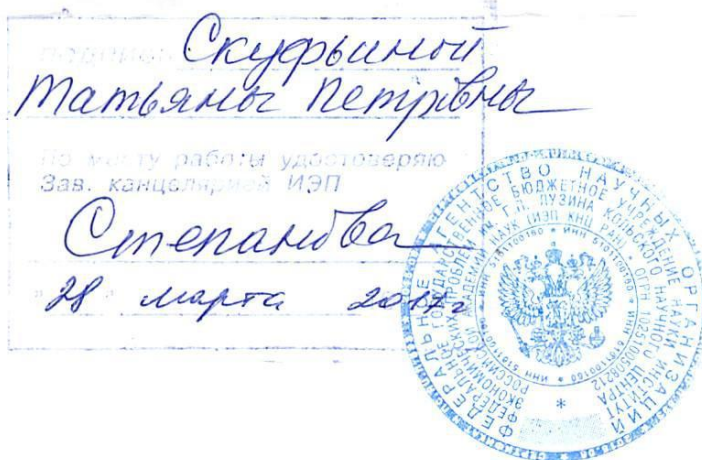 Скуфьиной
Татьяны Петровны
По месту работы удостоверяю
Зав. канцелярией ИЭП
Степанова
28 марта 2017 г
ФЕДЕРАЛЬНОЕ АГЕНТСТВО НАУЧНЫХ ОРГАНИЗАЦИЙ
ФЕДЕРАЛЬНОЕ ГОСУДАРСТВЕННОЕ БЮДЖЕТНОЕ УЧРЕЖДЕНИЕ НАУКИ ИНСТИТУТ
ЭКОНОМИЧЕСКИХ ПРОБЛЕМ ИМ. Г.П. ЛУЗИНА КОЛЬСКОГО НАУЧНОГО ЦЕНТРА
РОССИЙСКОЙ АКАДЕМИИ НАУК (ИЭП КНЦ РАН)